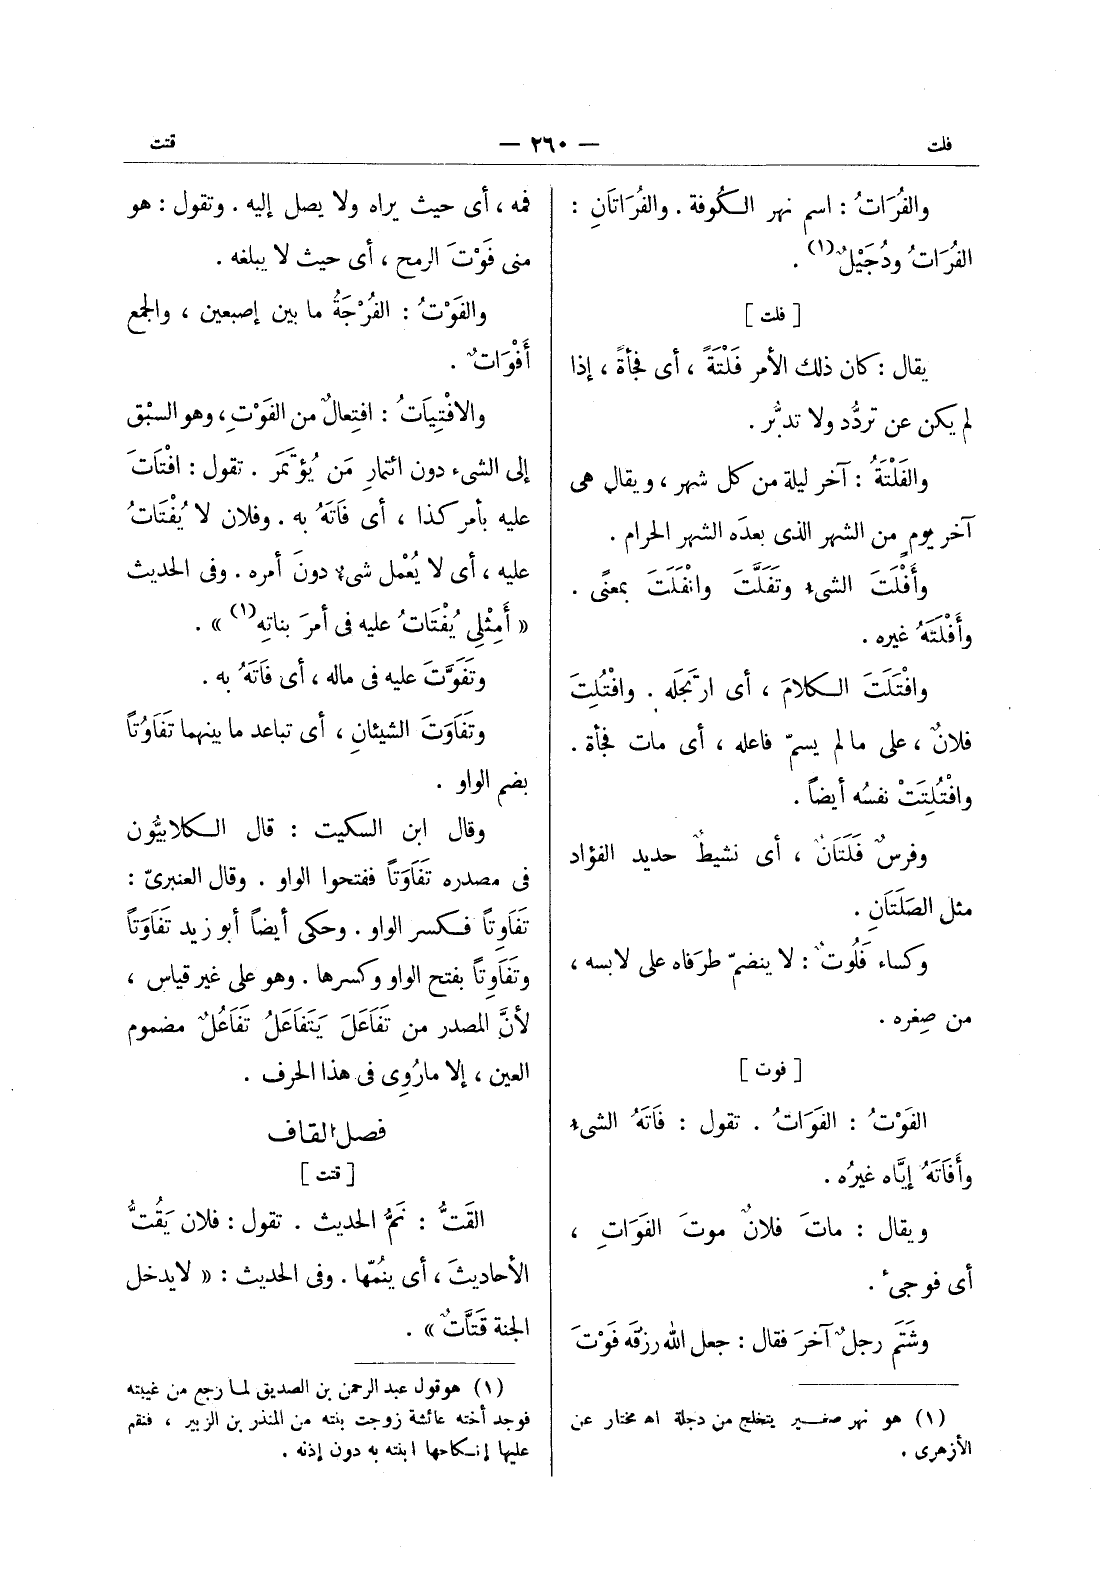 فلت
— ٢٦٠ —
قتت
والفُرَاتُ : اسم نهر الكُوفة . والفُرَاتَانِ :
الفُرَاتُ ودُجَيْلٌ(١) .
[ فلت ]
يقال : كان ذلك الأمر فَلْتَةً ، أى فجأةً ، إذا
لم يكن عن تردُّد ولا تدبُّر .
والفَلْتَةُ : آخر ليلة من كل شهر ، ويقال هى
آخر يومٍ من الشهر الذى بعدَه الشهر الحرام .
وأَفْلَتَ الشىء وتَفَلَّتَ وانْفَلَتَ بمعنًى .
وأَفْلَتَهُ غيره .
وافْتَلَتَ الكلامَ ، أى ارتجله . وافْتُلِتَ
فلانٌ ، على مالم يسمّ فاعله ، أى مات فجأة .
وافْتُلِتَتْ نفسُه أيضاً .
وفرسٌ فَلَتَانٌ ، أى نشيطٌ حديد الفؤاد
مثل الصَلَتَانِ .
وكساء فَلُوتٌ : لا ينضمّ طرَفاه على لابسه ،
من صِغره .
[ فوت ]
الفَوْتُ : الفَوَاتُ . تقول : فَاتَهُ الشىء
وأَفَاتَهُ إيَّاه غيرُه .
ويقال : ماتَ فلانٌ موتَ الفَوَاتِ ،
أى فوجىء .
وشَتَم رجلٌ آخرَ فقال : جعل الله رزقَه فَوْتَ
(١) هو نهر صغير يتخلج من دجلة اه مختار عن
الأزهرى .
فمه ، أى حيث يراه ولا يصل إليه . وتقول : هو
منى فَوْتَ الرمح ، أى حيث لا يبلغه .
والفَوْتُ : الفُرْجَةُ ما بين إصبعين ، والجمع
أَفْوَاتٌ .
والافْتِيَاتُ : افتِعالٌ من الفَوْتِ ، وهو السبْق
إلى الشىء دون ائتمارِ مَن يُؤتَمَر . تقول : افْتَاتَ
عليه بأمر كذا ، أى فَاتَهُ به . وفلان لا يُفْتَاتُ
عليه ، أى لا يُعْمل شىء دونَ أمره . وفى الحديث
« أَمِثْلِى يُفْتَاتُ عليه فى أمرَ بناتِه(١) » .
وتَفَوَّتَ عليه فى ماله ، أى فَاتَهُ به .
وتَفَاوَتَ الشيئانِ ، أى تباعد ما بينهما تَفَاوُتاً
بضم الواو .
وقال ابن السكيت : قال الكلابيُّون
فى مصدره تَفَاوَتاً ففتحوا الواو . وقال العنبرىّ :
تَفَاوِتاً فكسر الواو . وحكى أيضاً أبو زيد تَفَاوَتاً
وتَفَاوِتاً بفتح الواو وكسرها . وهو على غير قياس ،
لأنَّ المصدر من تَفَاعَلَ يَتَفَاعَلُ تَفَاعُلٌ مضموم
العين ، إلا مارُوِى فى هذا الحرف .
فصل القاف
[ قتت ]
القَتُّ : نَمُّ الحديث . تقول : فلان يَقُتُّ
الأحاديثَ ، أى ينُمّها . وفى الحديث : « لايدخل
الجنة قَتَّاتٌ » .
(١) هوقول عبد الرحمن بن الصديق لما رجع من غيبته
فوجد أخته عائشة زوجت بنته من المنذر بن الزبير ، فنقم
عليها إنكاحها ابنته به دون إذنه .